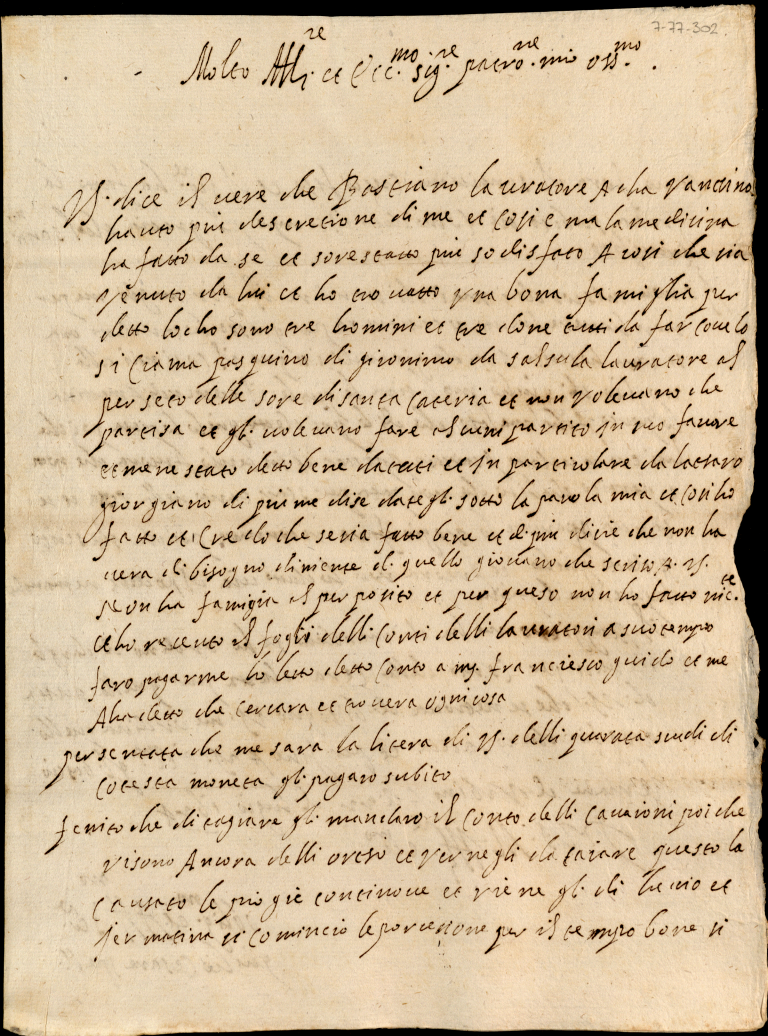 7-77-302
Molto Ill.re et Ecc.mo sig.re patro.ne mio oss.mo.
VS. dice il vere che Bastiano lavuratore A cha vandino
hauto piu descretione di me et cosi e mala medicina
ha fatto da se et sorestato piu sodisfato A cosi che sia
venuto da lui et ho trovatto una bona famiglia per
detto locho sono tre homini et tre done tuti da far covelo
si ciama pasquino di gironimo da salsula lavuratore al
perseto delle sore di santa cateria et non volevano che
partisa et gli volevano fare alcuni partito in suo favore
et mene stato detto bene da tuti et in particolare da lattaro
giorgiano di piu me dise dategli sotto la parola mia et cosi ho
fatto et credo che seria fatto bene et di piu dicie che non ha
vera di bisogno di niente di quello giovano che scriso A VS.
se on ha famiglia al perposito et per queso non ho fatto nie.te
et ho receuto il fogli delli conti delli lavuratori a suo tempo
faro pagarme ho letto detto conto a mg. franciesco guido et me
A ha detto che cercara et trovera ogni cosa
persentata che me sara la litera di VS. delli quarata scudi di
cotesta moneta gli pagaro subito
fenito che di tagiare gli mandaro il conto delli cavaioni poi che
visono Ancora delli orsi et vernegli da taiare questo la
causato le piogie continove et viene gli di lucio et
jer matina si comincio le porcessione per il tempo bone si